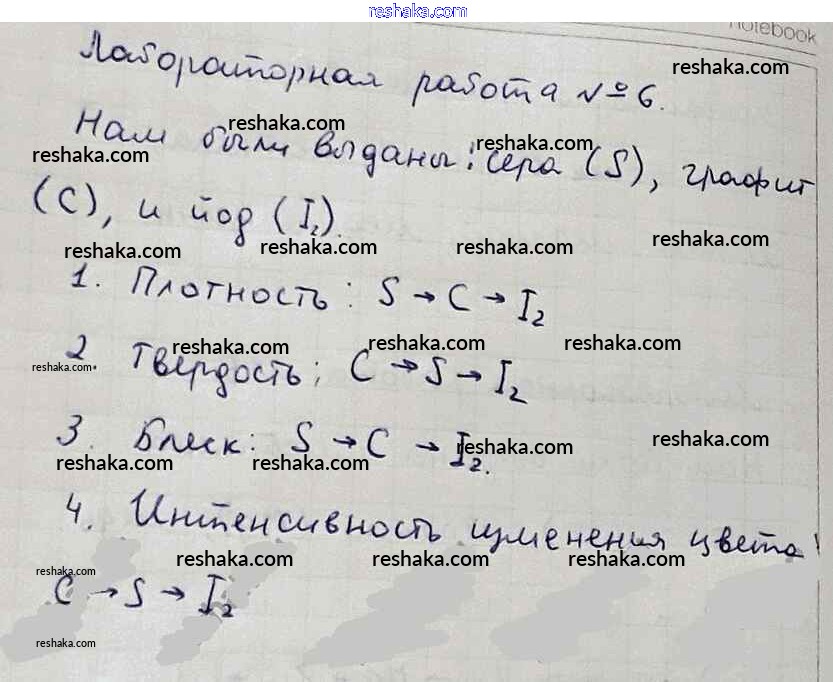 reshaka.com
notebook
Лабораторная работа №6.
reshaka.com
Нам были выданы: сера (S), графит
reshaka.com
reshaka.com
reshaka.com
(C), и йод (I₂).
reshaka.com
reshaka.com
reshaka.com
reshaka.com
1. Плотность: S → C → I₂
reshaka.com
reshaka.com
reshaka.com
2. Твёрдость: C → S → I₂
reshaka.com
3. Блеск: S → C → I₂.
reshaka.com
reshaka.com
reshaka.com
reshaka.com
4. Интенсивность изменения цвета:
reshaka.com
reshaka.com
reshaka.com
reshaka.com
C → S → I₂
reshaka.com
reshaka.com